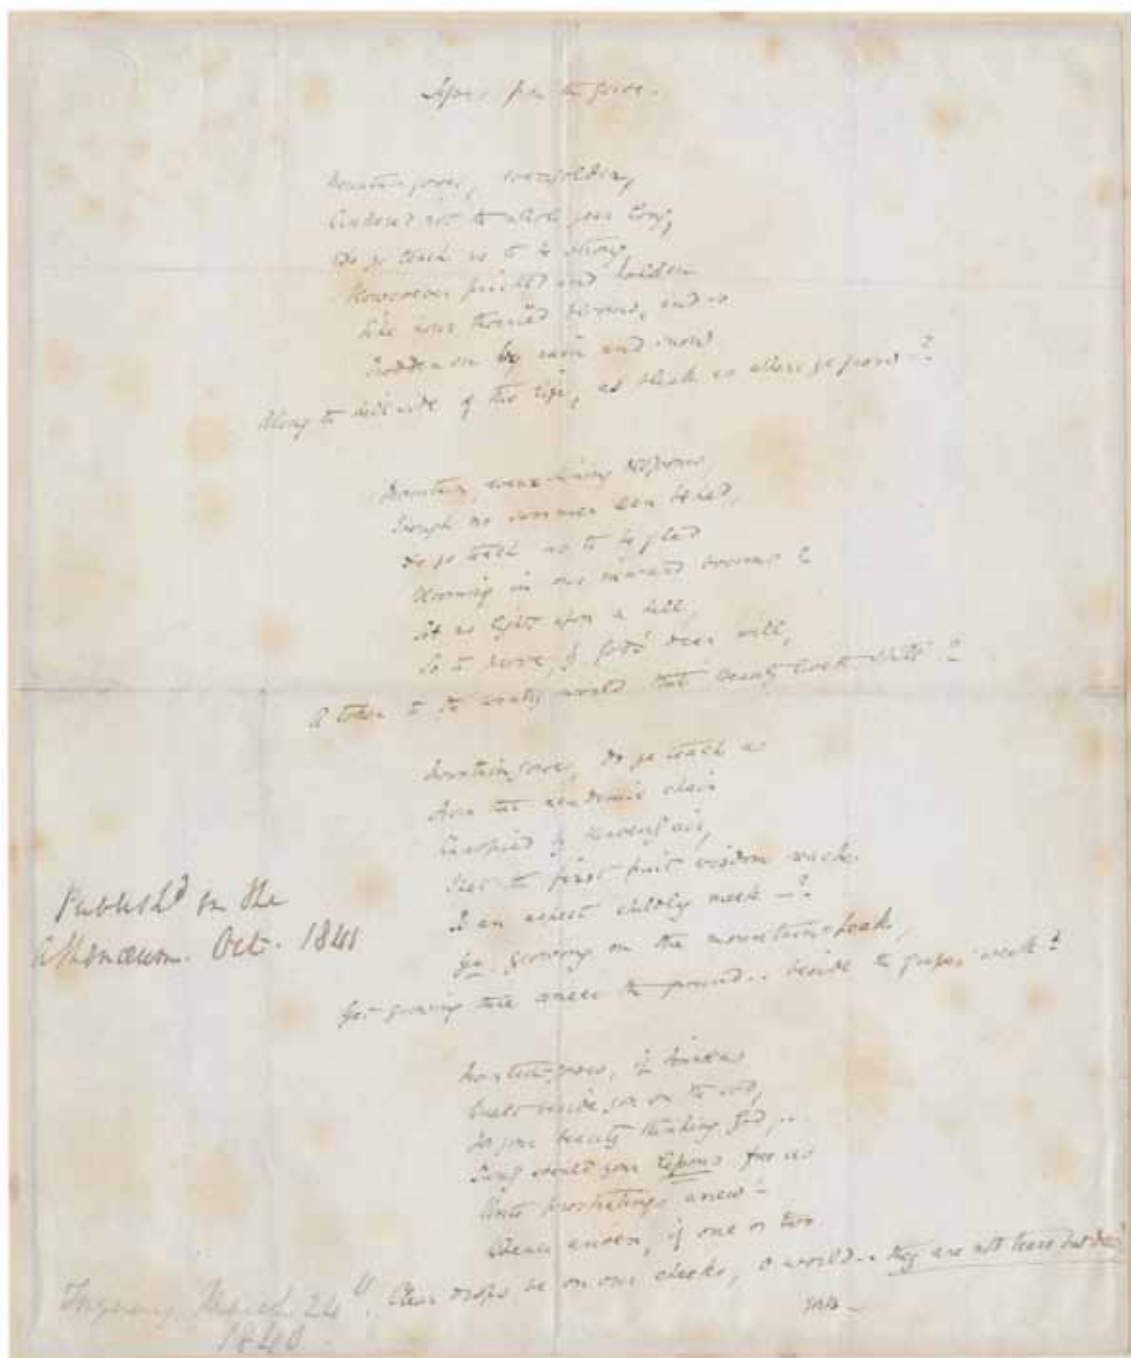 Lessons from the gorse.
Mountain gorses, evergolden,
Cankered not the whole year long,
Do ye teach us to be strong,
Howsoever pricked and holden
Like your blooms, and so
Trodden on by rain and snow
Along the hillside of this life, as bleak as where ye grow—?
Mountain blossoms,
Though no summer can be had,
Do ye teach us to be glad
Blooming in our inward bosoms?
Set as lights upon a hill,
So to prove, by God's dear will,
A token to the wintry world that beauty liveth still?
Mountain gorses, do ye teach us
From that academic chair
Canopied by air,
That the first fruit wisdom reaches
Is an aspect childly meek—?
Ye growing on the mountain-peak,
Yet growing there anear the ground.. beside the
Mountain gorses, if Linnæus
Knelt beside you on the sod,
For your beauty thanking God,..
should your lessons free us
Unto prostratings anew—
Whence arisen, if one or two
Clear drops be on our cheeks, O world.. they are not tears but dew!
EBB—
Publish'd in the
Athenæum. Oct. 1841
Torquay March 24th
1840.